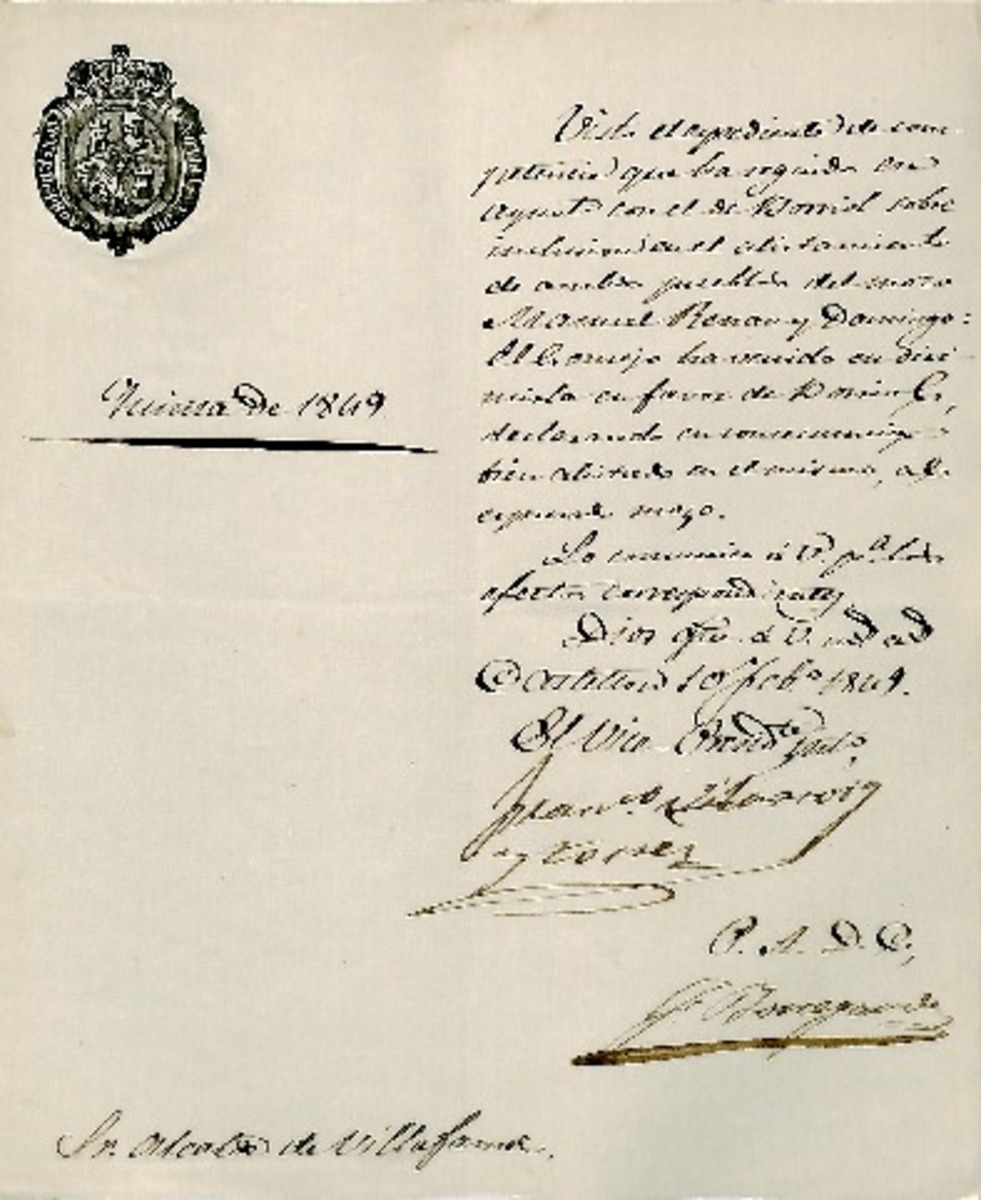 Quinta de 1849
Visto el espediente de com-
petencia que ha seguido ese
Ayunt.º con el de Borriol sobre
inclusion en el alistamiento
de ambos pueblos del mozo
Manuel Renau y Domingo:
El Consejo ha venido en diri-
mirla en favor de
declarando en consecuencia
bien alistado en el mismo, al
espresado mozo.
Lo comunico á V. p.ª los
efectos correspondientes
Dios gue á V. m.s a.s
Castellon 10 feb.º 1849.
El Vice Presid.te
Fran.co
y Torres
P. A. D. C.,
Sr. Alcalde de Villafamés.